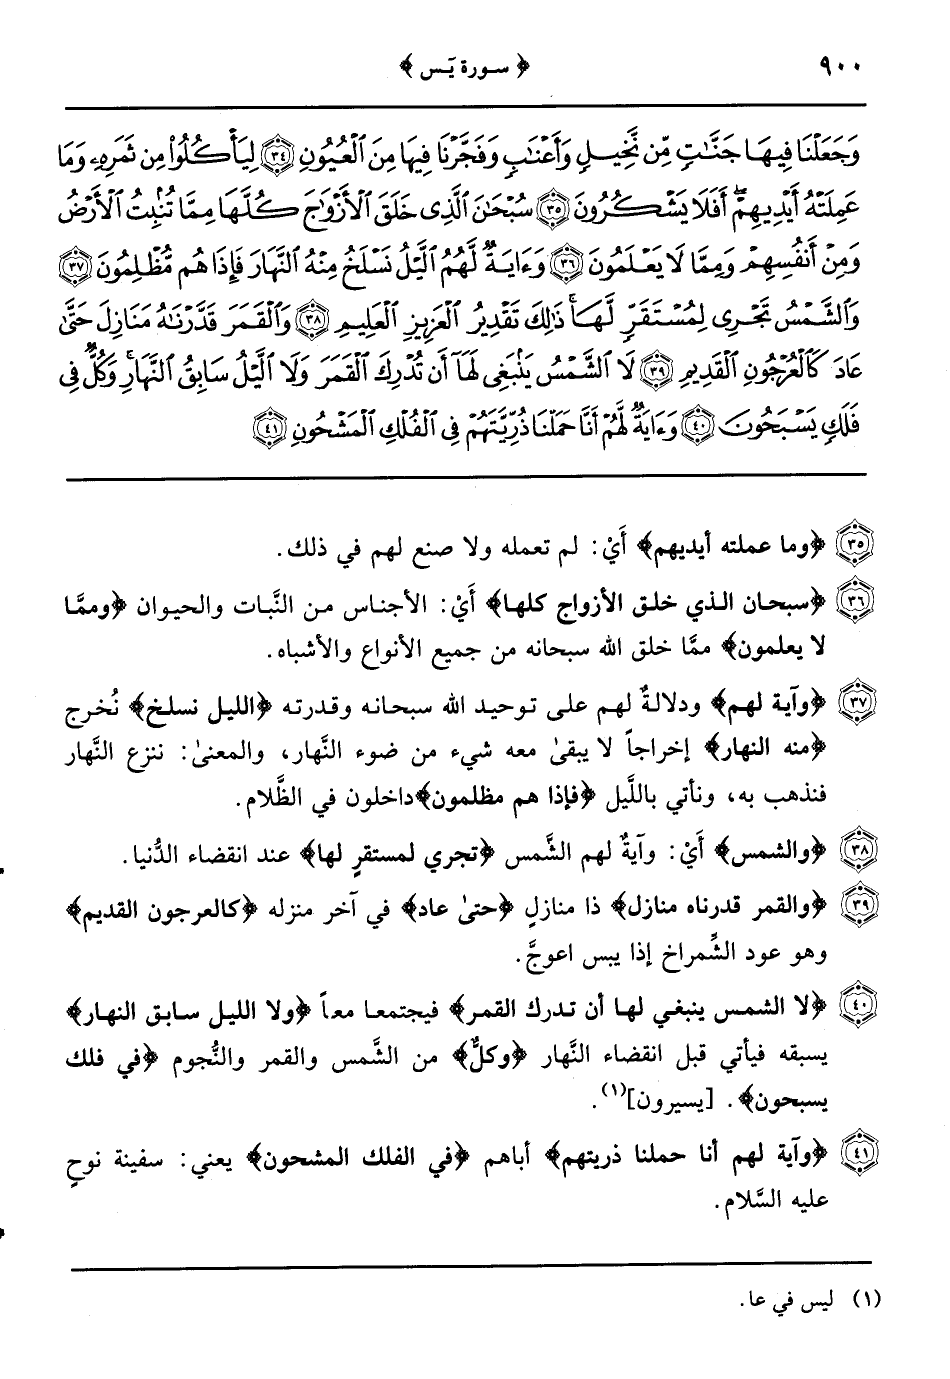 ٩٠٠
﴿ سورة يَس ﴾
وَجَعَلْنَا فِيهَا جَنَّٰتٍ مِّن نَّخِيلٍ وَأَعْنَٰبٍ وَفَجَّرْنَا فِيهَا مِنَ ٱلْعُيُونِ ﴿٣٤﴾ لِيَأْكُلُوا۟ مِن ثَمَرِهِۦ وَمَا
عَمِلَتْهُ أَيْدِيهِمْ ۖ أَفَلَا يَشْكُرُونَ ﴿٣٥﴾ سُبْحَٰنَ ٱلَّذِى خَلَقَ ٱلْأَزْوَٰجَ كُلَّهَا مِمَّا تُنۢبِتُ ٱلْأَرْضُ
وَمِنْ أَنفُسِهِمْ وَمِمَّا لَا يَعْلَمُونَ ﴿٣٦﴾ وَءَايَةٌ لَّهُمُ ٱلَّيْلُ نَسْلَخُ مِنْهُ ٱلنَّهَارَ فَإِذَا هُم مُّظْلِمُونَ ﴿٣٧﴾
وَٱلشَّمْسُ تَجْرِى لِمُسْتَقَرٍّ لَّهَا ۚ ذَٰلِكَ تَقْدِيرُ ٱلْعَزِيزِ ٱلْعَلِيمِ ﴿٣٨﴾ وَٱلْقَمَرَ قَدَّرْنَٰهُ مَنَازِلَ حَتَّىٰ
عَادَ كَٱلْعُرْجُونِ ٱلْقَدِيمِ ﴿٣٩﴾ لَا ٱلشَّمْسُ يَنۢبَغِى لَهَآ أَن تُدْرِكَ ٱلْقَمَرَ وَلَا ٱلَّيْلُ سَابِقُ ٱلنَّهَارِ ۚ وَكُلٌّ فِى
فَلَكٍ يَسْبَحُونَ ﴿٤٠﴾ وَءَايَةٌ لَّهُمْ أَنَّا حَمَلْنَا ذُرِّيَّتَهُمْ فِى ٱلْفُلْكِ ٱلْمَشْحُونِ ﴿٤١﴾
٣٥ ﴿وما عملته أيديهم﴾ أَيْ: لم تعمله ولا صنع لهم في ذلك.
٣٦ ﴿سبحان الذي خلق الأزواج كلها﴾ أَيْ: الأجناس من النَّبات والحيوان ﴿وممَّا
لا يعلمون﴾ ممَّا خلق الله سبحانه من جميع الأنواع والأشباه.
٣٧ ﴿وآية لهم﴾ ودلالةٌ لهم على توحيد الله سبحانه وقدرته ﴿الليل نسلخ﴾ نُخرج
﴿منه النهار﴾ إخراجاً لا يبقىٰ معه شيء من ضوء النَّهار، والمعنىٰ: ننزع النَّهار
فنذهب به، ونأتي باللَّيل ﴿فإذا هم مظلمون﴾داخلون في الظَّلام.
٣٨ ﴿والشمس﴾ أَيْ: وآيةٌ لهم الشَّمس ﴿تجري لمستقرٍ لها﴾ عند انقضاء الدُّنيا.
٣٩ ﴿والقمر قدرناه منازل﴾ ذا منازلٍ ﴿حتىٰ عاد﴾ في آخر منزله ﴿كالعرجون القديم﴾
وهو عود الشِّمراخ إذا يبس اعوجَّ.
٤٠ ﴿لا الشمس ينبغي لها أن تدرك القمر﴾ فيجتمعا معاً ﴿ولا الليل سابق النهار﴾
يسبقه فيأتي قبل انقضاء النَّهار ﴿وكلٌّ﴾ من الشَّمس والقمر والنُّجوم ﴿في فلك
يسبحون﴾. [يسيرون](١).
٤١ ﴿وآية لهم أنا حملنا ذريتهم﴾ أباهم ﴿في الفلك المشحون﴾ يعني: سفينة نوحٍ
عليه السَّلام.
(١) ليس في عا.